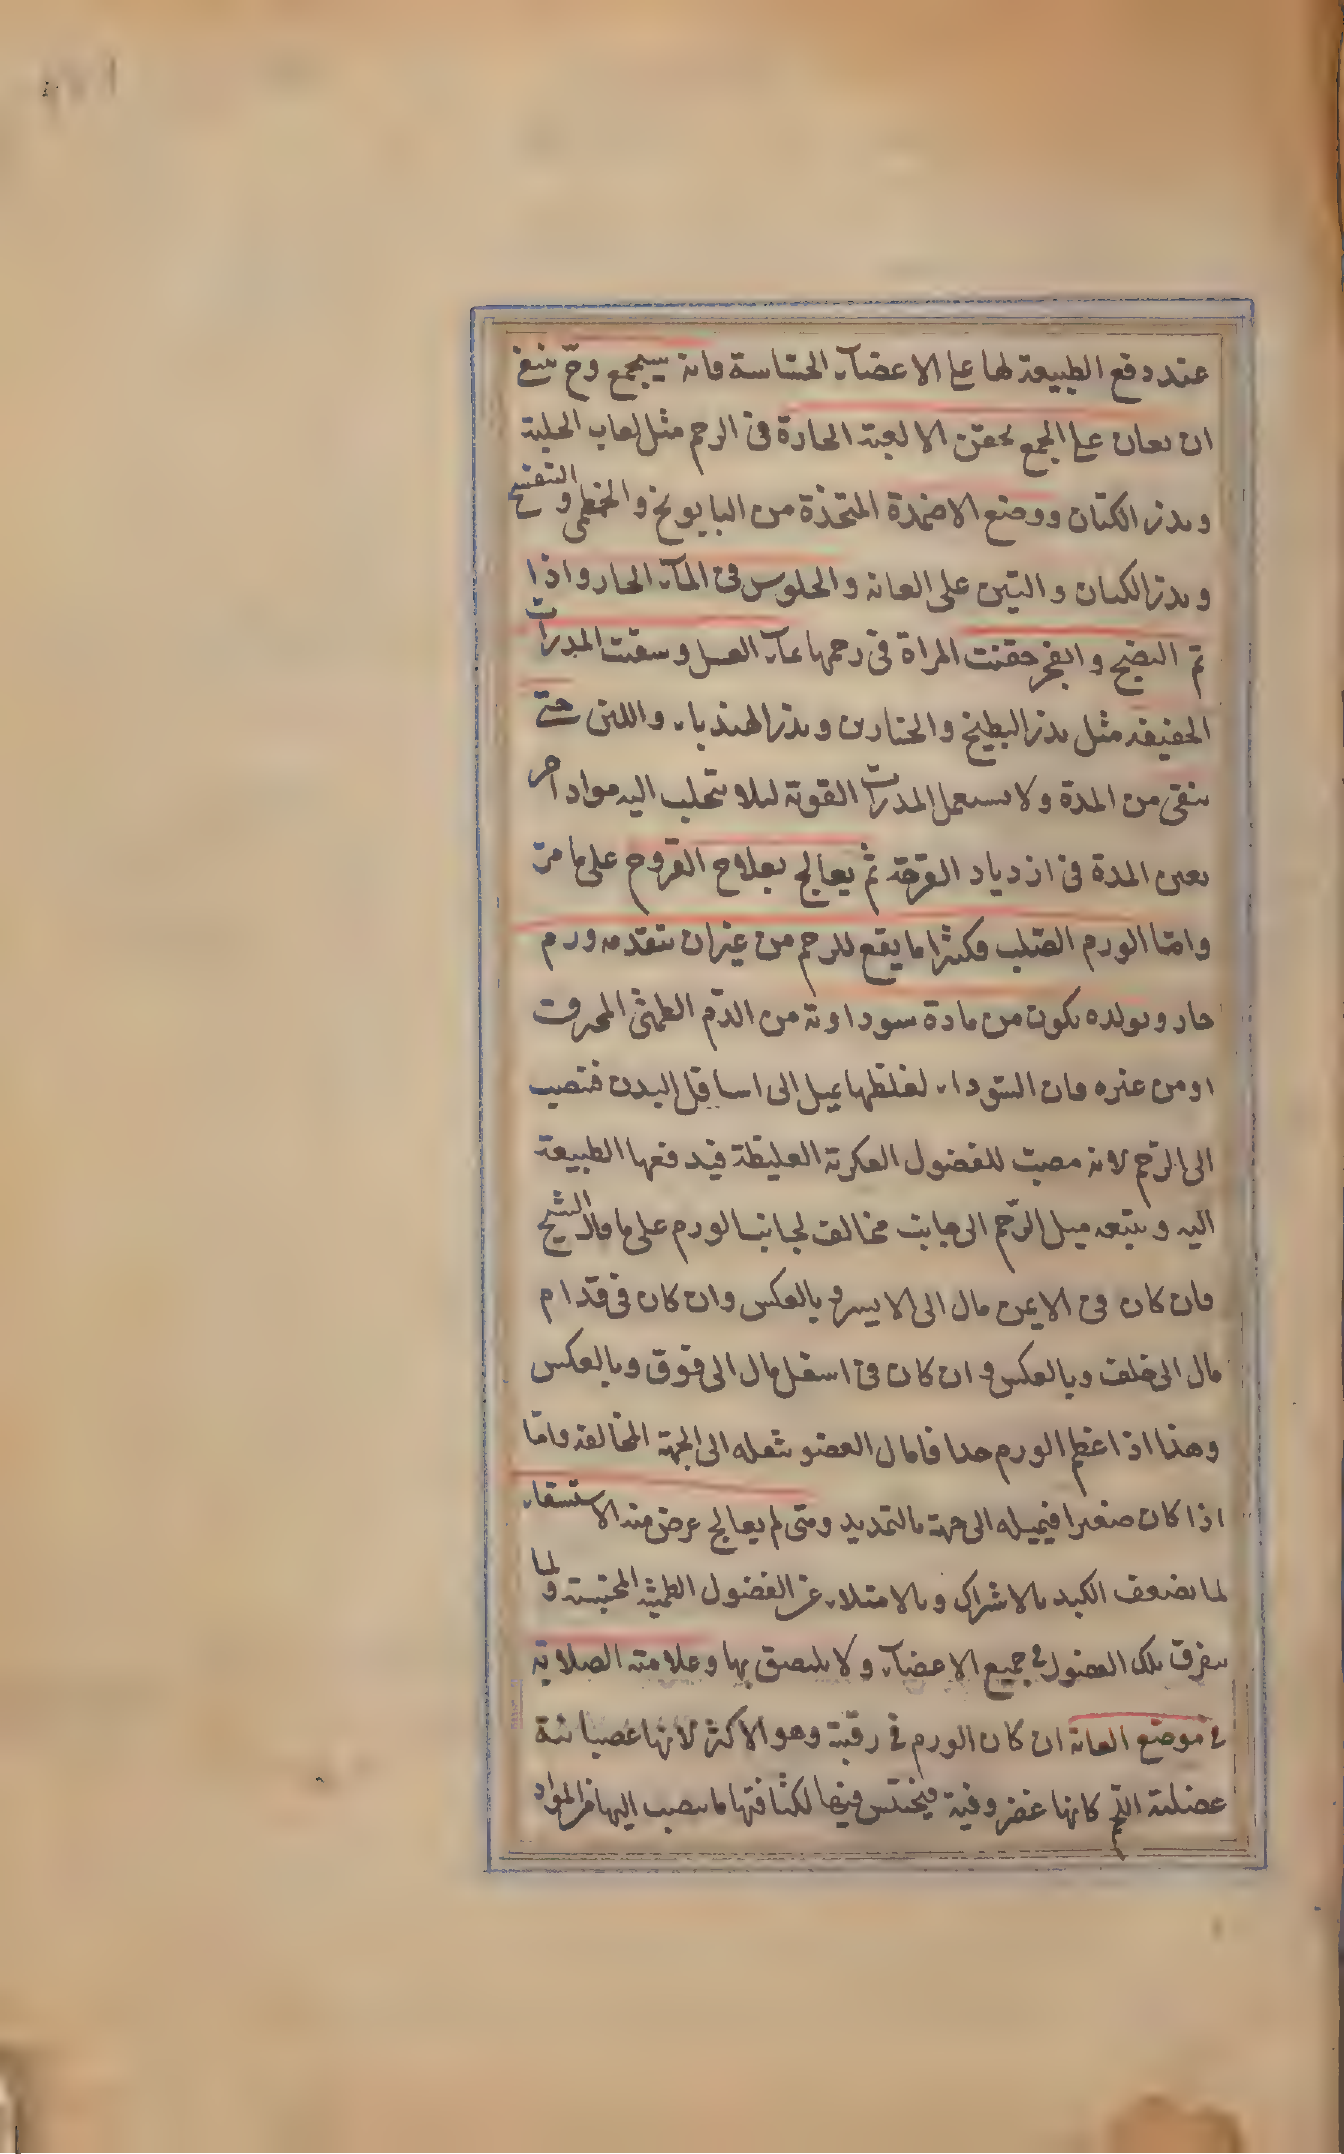 عند دفع الطبيعة لها على الاعضاء الحساسة فانه سيجمع وح ينبغى
ان يعان على الجمع بحقن الالعبة الحارة فى الرحم مثل لعاب الحلبة
وبذر الكتان ووضع الاضمدة المتخذة من البابونج والخطمى و
وبذر الكتان والتين على العانة والجلوس فى الماء الحار واذا
تم النضج وانفجر حقنت المراة فى رحمها بماء العسل وسقيت المدرات
الخفيفة مثل بذر البطيخ والخيارين وبذر الهندباء واللبن حتى
ينقى من المدة ولا يستعمل المدرات القوية لئلا يتحلب اليه مواد اخر
يعين المدة فى ازدياد القرحة ثم يعالج بعلاج القروح على ما مر
واما الورم الصلب فكثيرا ما يقع للرحم من غير ان يتقدمه ورم
حار وتولده يكون من مادة سوداوية من الدم الطمثى المحرق
او من غيره فان السوداء لغلظها يميل الى اسافل البدن فتصب
الى الرحم لانه مصب للفضول العكرة الغليظة فيدفعها الطبيعة
اليه ويتبعه ميل الرحم الى جانب مخالف لجانب الورم على ما قال الشيخ
فان كان فى الايمن مال الى الايسر وبالعكس وان كان فى قدام
مال الى خلف وبالعكس وان كان فى اسفل مال الى فوق وبالعكس
وهذا اذا عظم الورم جدا فامال العضو بثقله الى الجهة المخالفة واما
اذا كان صغيرا فيميله الى جهته بالتمديد ومتى لم يعالج عرض منه الاستسقاء
لما يضعف الكبد بالاشتراك وبالامتلاء عن الفضول الطمثية المحتبسة ولما
يتفرق تلك الفضول فى جميع الاعضاء ولا يلتصق بها وعلامته الصلابة
فى موضع العانة ان كان الورم فى رقبته وهو الاكثر لانها عصبانية
عضلية اللحم كانها غضروفية فيحتبس فيها لكثافتها ما ينصب اليها من المواد